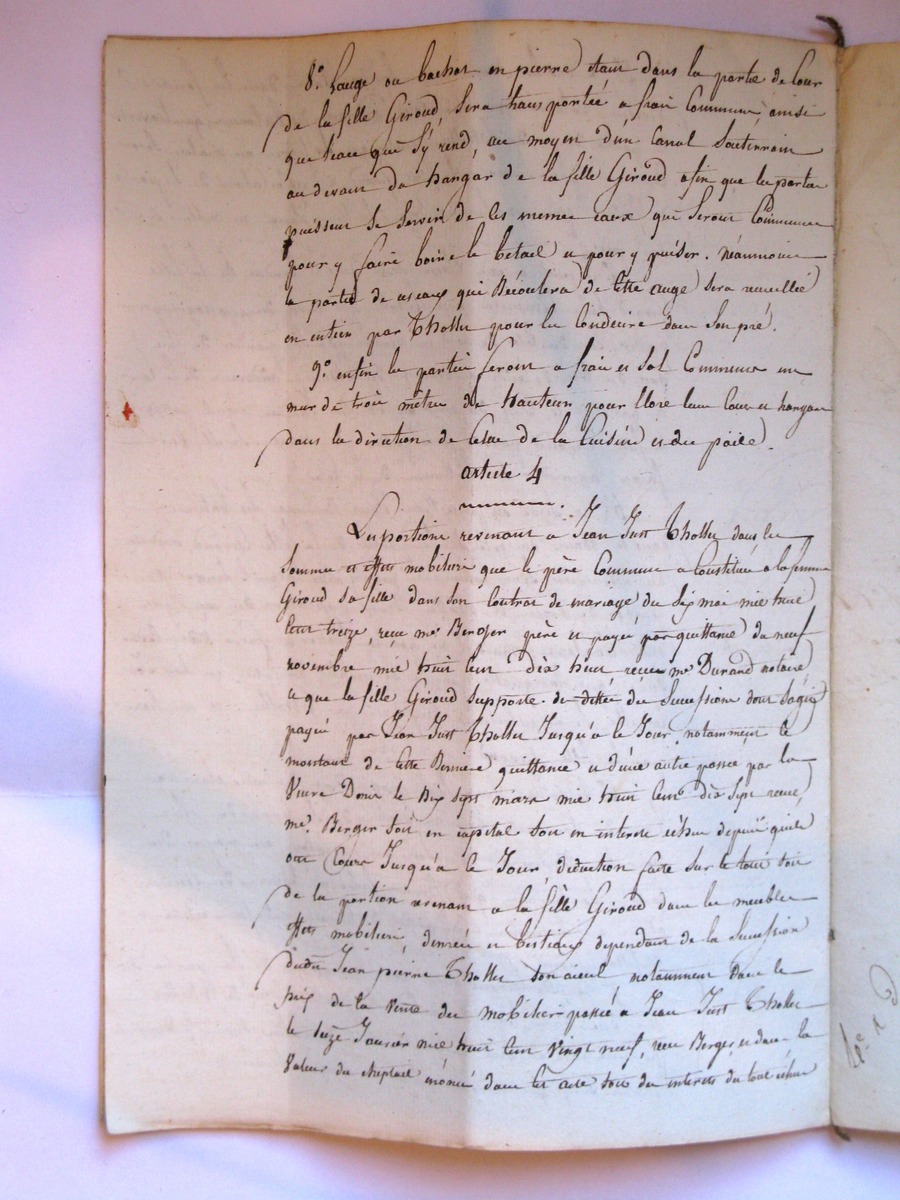 8.° Lauge ou bachat en pierre etant dans la partie de Cour
de la fille Giroud, Sera transportée a frais Communs, ainsi
que l'eau qui S'y rend, au moyen d'un Canal Souterrain
au devant du hangar de la fille Giroud afin que les parties
puissent Se Servir de les memes eaux qui Seront Communes
pour y faire boire le betail et pour y puiser. Néanmoins
la partie de ces eaux qui Découlera de Cette auge Sera recueillie
en entier par Tholler pour les Conduire dans Son pré.
9.° enfin les parties feront a frais et Sol Communs un
mur de trois mètres de Hauteur pour Clore leur Cour et hangar
dans la direction de Celui de la Cuisine et du poële.
article 4
Les portions revenant a Jean Just Tholler dans les
Sommes et effets mobiliers que le père Commun a Constitués a la femme
Giroud Sa fille dans Son Contrat de mariage du Six mai mil huit
Cent treize, reçu me Berger père et payés par quittance du neuf
novembre mil huit Cent dix huit reçue me Durand notaire
et que la fille Giroud Supporte de dettes des Successions dont S'agit
payées par Jean Just Tholler Jusqu'a Ce Jour, notamment le
montant de Cette Derniere quittance et d'une autre passée par la
Veuve Donin le Dix Sept mars mil huit Cent dix Sept reçue
me. Berger Soit en capital Soit en interets échus depuis qu'ils
ont Cours Jusqu'a Ce Jour, déduction faite Sur le tout Soit
de la portion revenant a la fille Giroud dans les meubles
effets mobiliers, denrées et bestiaux dependant de la Succession
dudit Jean pierre Tholler Son aieul notamment dans le
prix de la Vente du Mobilier passée a Jean Just Tholler
le Janvier mil huit Cent Vingt neuf, reçu Berger, et dans la
Valeur du cheptail énoncé dans Cet acte Soit des interets du tout échus